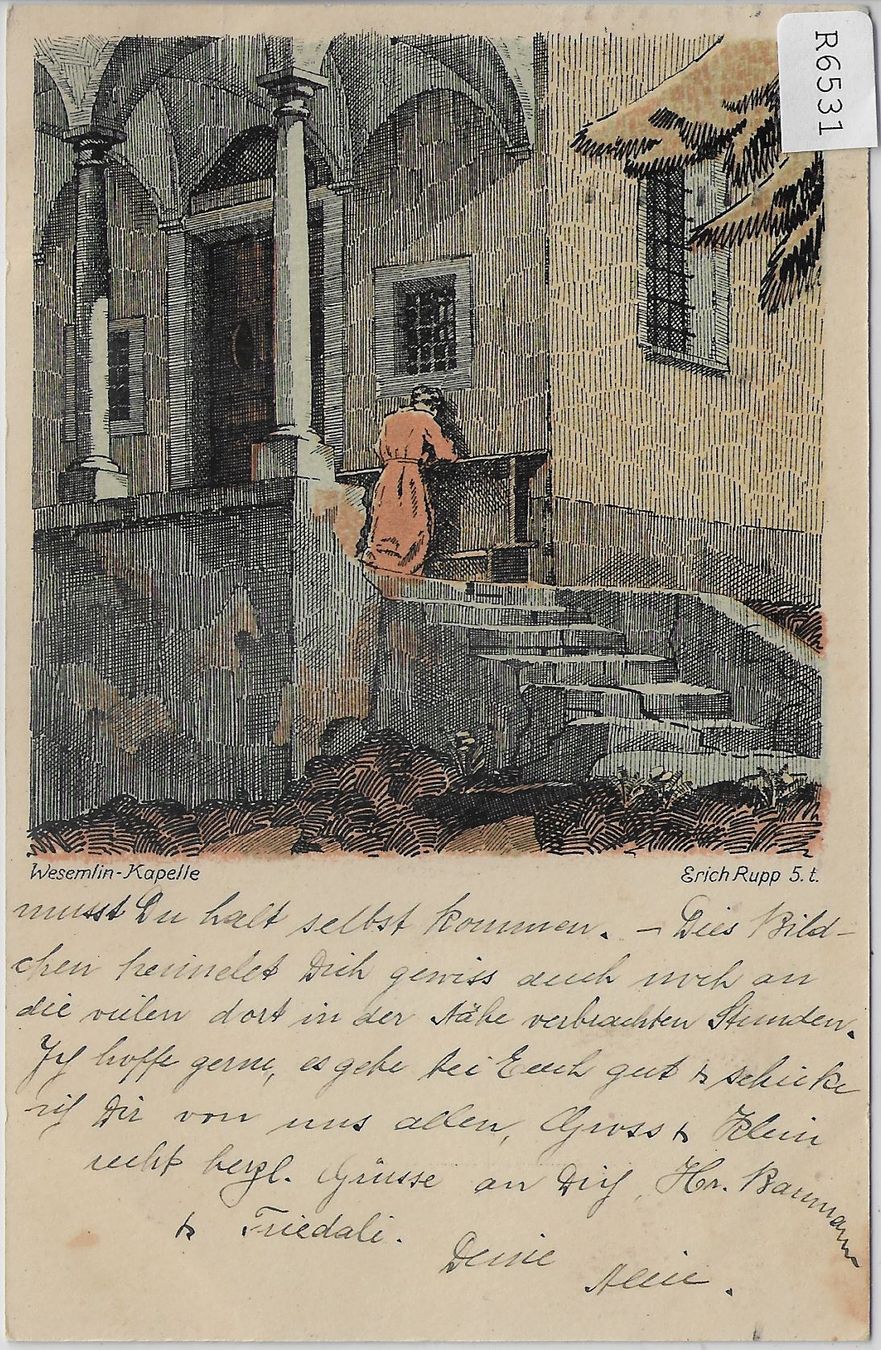 R6531
Wesemlin-Kapelle
Erich Rupp 5. t.
musst Du halt selbst kommen. – Dies Bild-
chen heimelet Dich gewiss auch noch an
die vielen dort in der Nähe verbrachten Stunden.
Ich hoffe gerne, es gehe bei Euch gut & schicke
ich Dir von uns allen, Gross & Klein
recht herzl. Grüsse an Dich, Hr. Baumann
& Friedali.
Deine